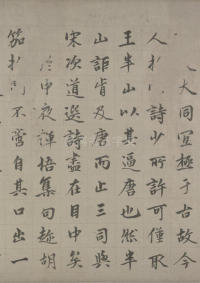 大同冥極于古故今
人扵詩少所許可僅取
王半山以其逼唐也然半
山詎肯及唐而止三司與
宋次道選詩盡在目中矣
中夜譚悟集句胡
笳扵不啻自其口出一